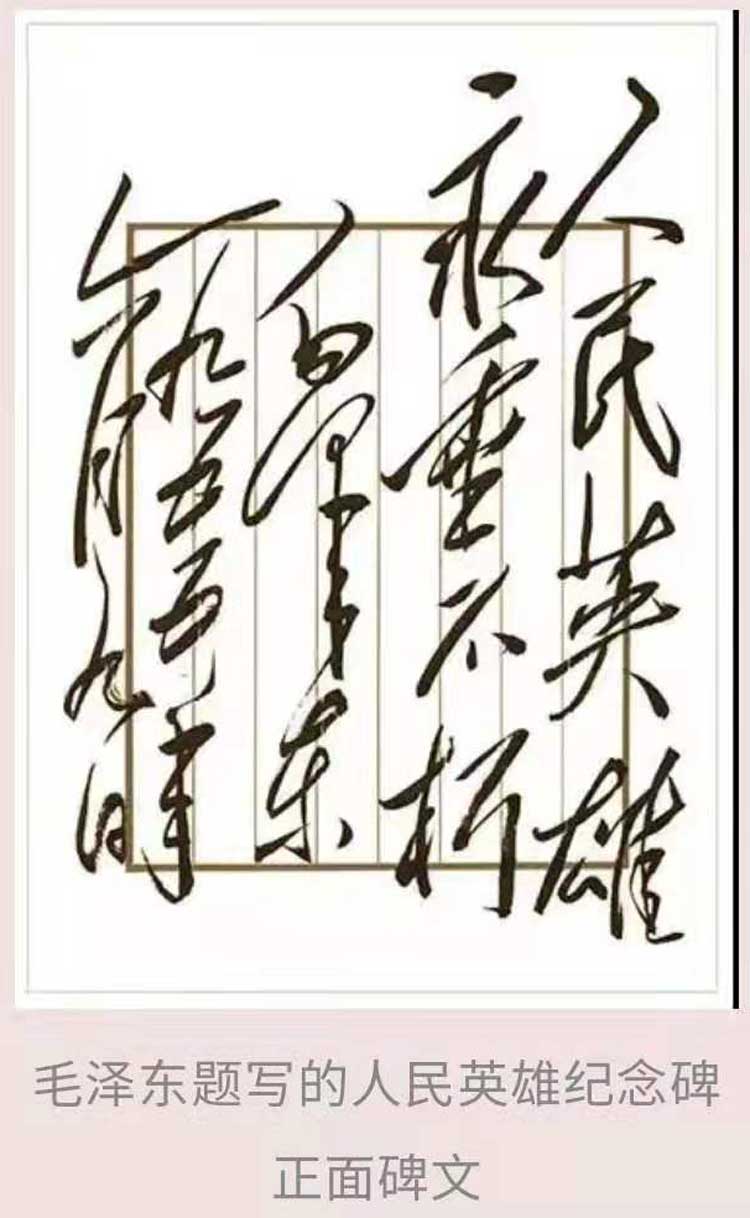 人民英雄
永垂不朽
毛泽东
一九五五年
六月九日
毛泽东题写的人民英雄纪念碑
正面碑文